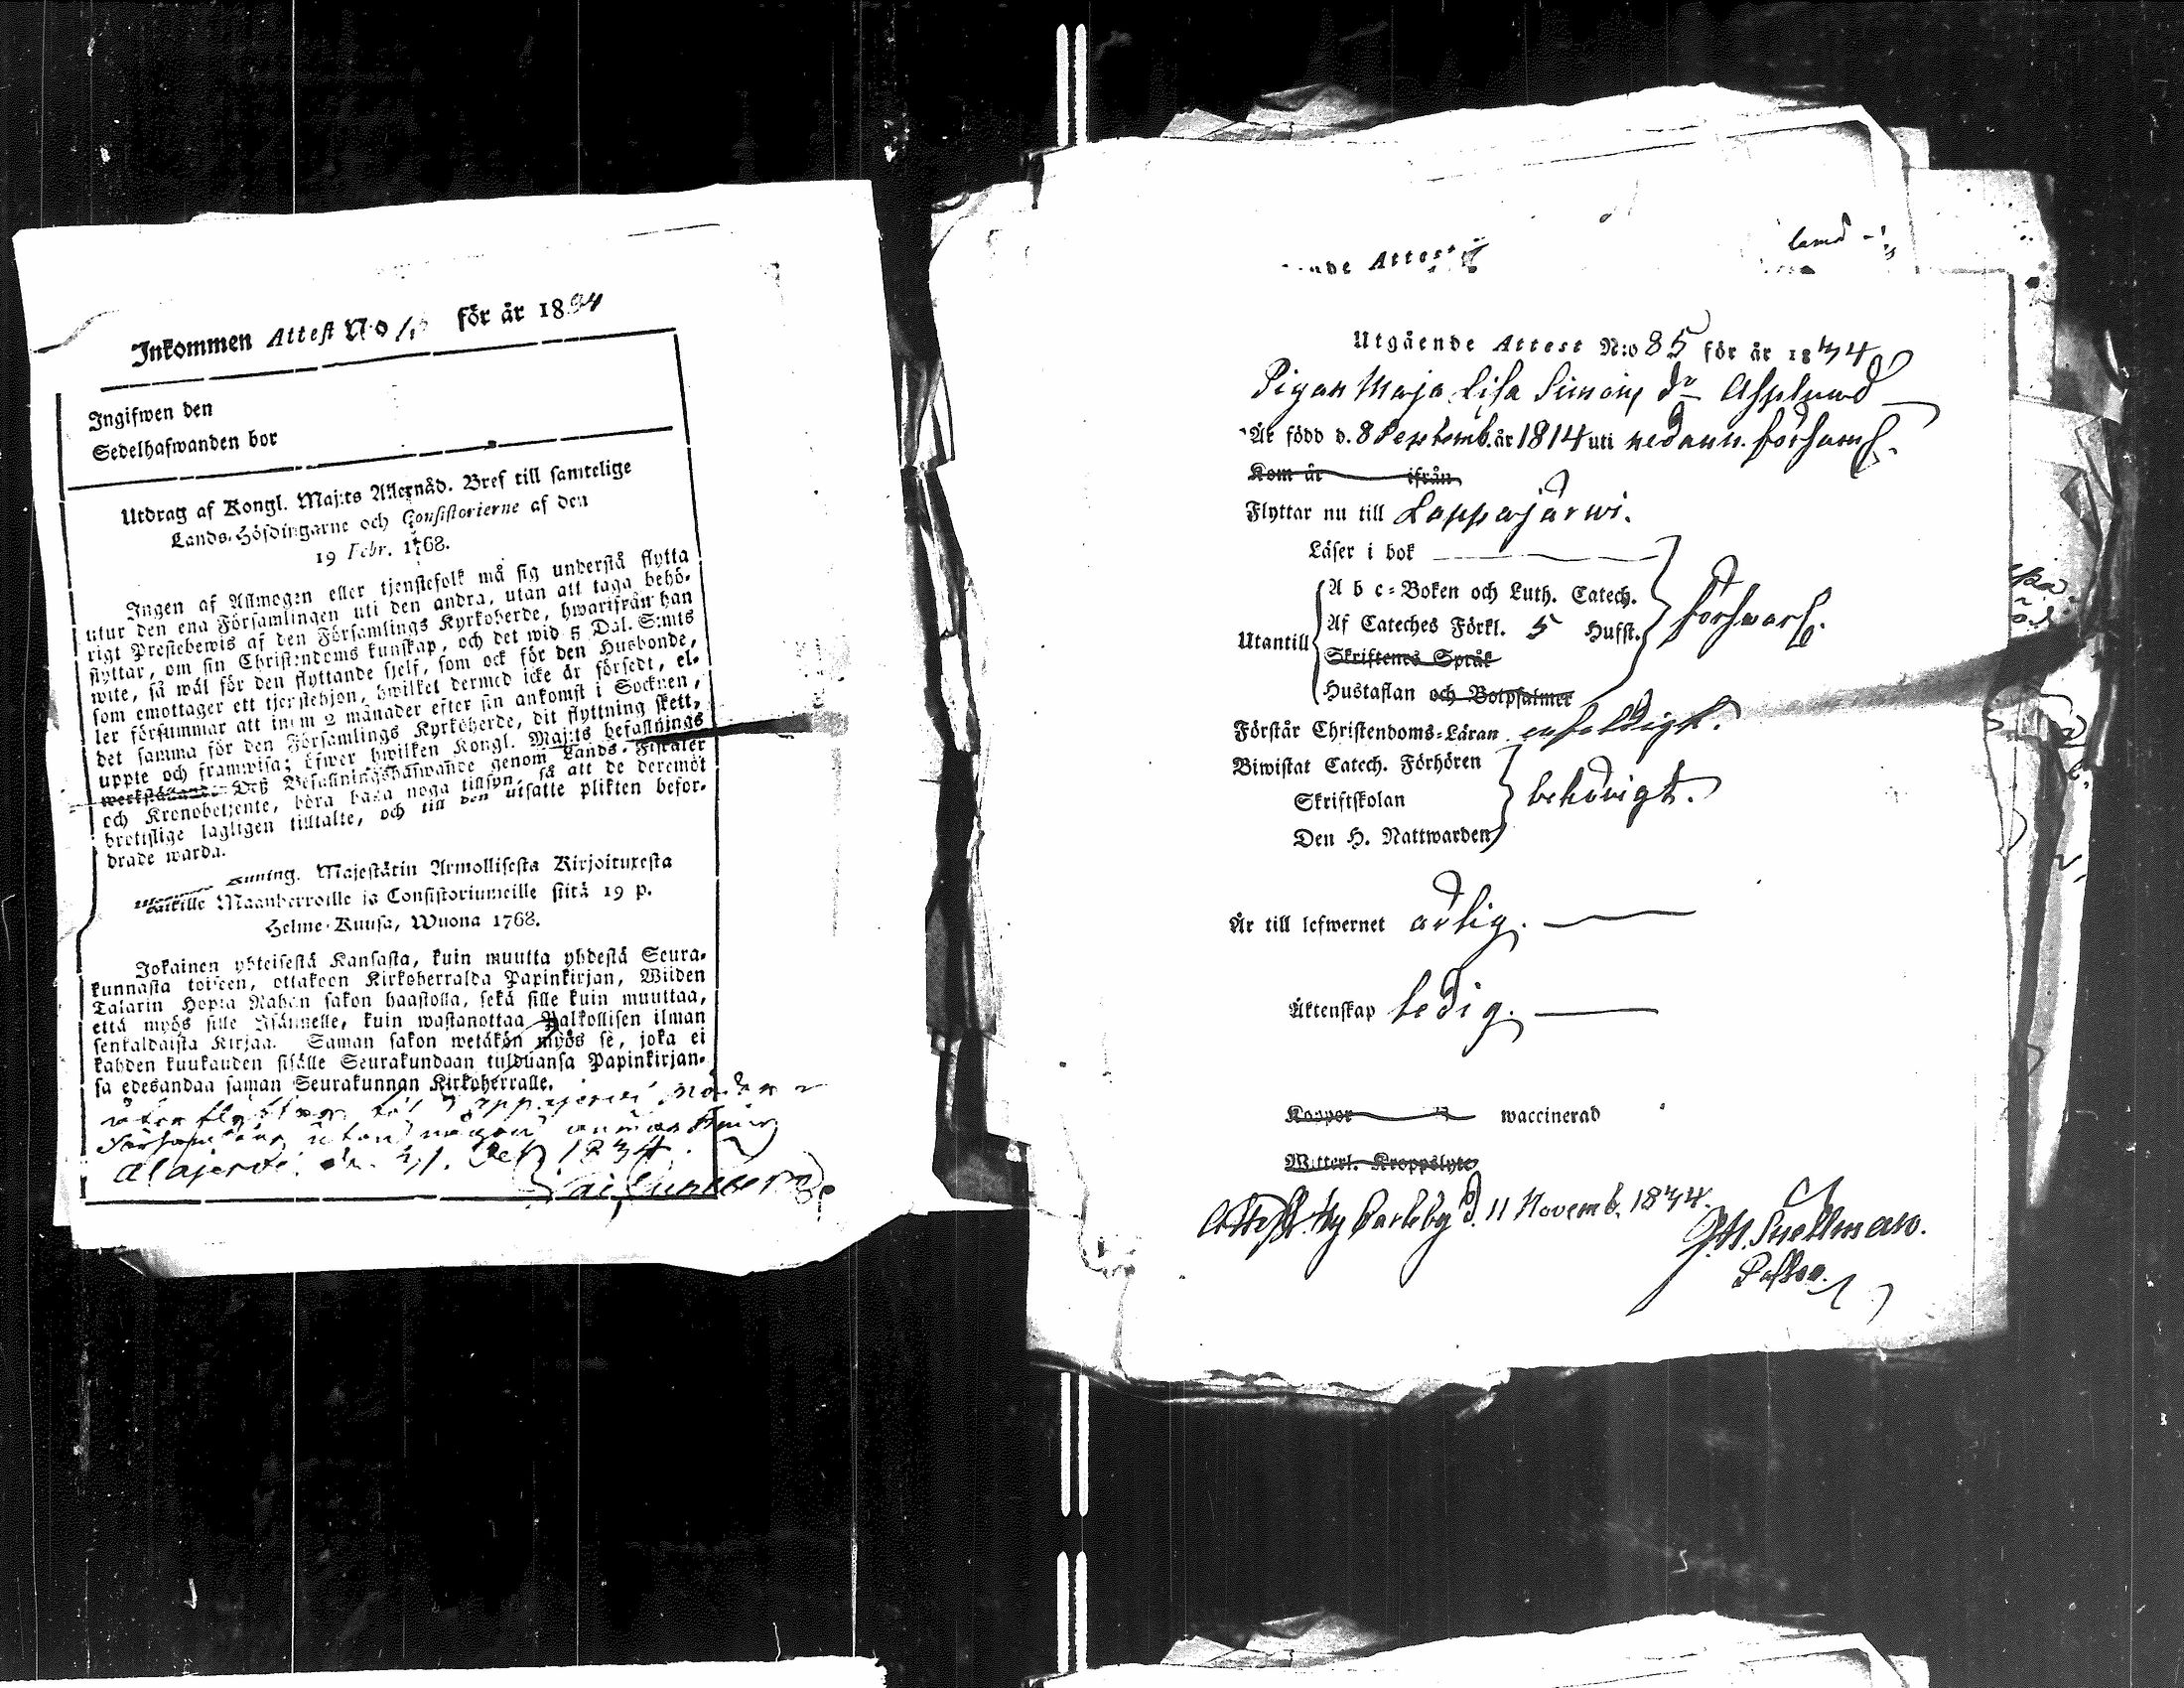 Inkommen Attest N:o för år 1834
Ingifwen den
Sedelhafwanden bor
Utdrag af Kongl. Maj:ts Allernåd. Bref till samtelige
Lands-Höfdingarne och Consistorierne af den
19 Febr. 1768.
Ingen af Allmogen eller tjenstefolk må sig understå flytta
utur den ena Församlingen uti den andra, utan att taga behö-
rigt Prestebewis af den Församlings Kyrkoherde, hwarifrån han
flyttar, om sin Christendoms kunskap, och det wid 5 Dal. S:mts
wite, så wäl för den flyttande sjelf, som ock för den Husbonde,
som emottager ett tjenstehjon, hwilket dermed icke är försedt, el-
ler försummar att inom 2 månader efter sin ankomst i Socknen,
det samma för den Församlings Kyrkoherde, dit flyttning skett,
uppte och framwisa; öfwer hwilken Kongl. Maj:ts befallnings
werkställande Deß Befallningshafwande genom Lands-Fiskaler
och Kronobetjente, böra hafa noga tillsyn, så att de deremot
brottslige lagligen tilltalte, och till den utsatte plikten befor-
drade warda.
Kuning. Majestätin Armollisesta Kirjoituxesta
kaikille Maanherroille ja Consistoriumeille siitä 19 p.
Helme-Kuusa, Wuona 1768.
Jokainen yhteisestä Kansasta, kuin muutta yhdestä Seura-
kunnasta toiseen, ottakoon Kirkoherralda Papinkirjan, Wiiden
Talarin Hopia Rahan sakon haastolla, sekä sille kuin muuttaa,
että myös sille Isännelle, kuin wastanottaa Palkollisen ilman
senkaldaista Kirjaa. Saman sakon wetäkön myös se, joka ei
kahden kuukauden sisälle Seurakundaan tulduansa Papinkirjan-
sa edesandaa saman Seurakunnan Kirkoherralle.
återflyttar till Lappajerwi Moder
Församling utan någon anmärkning
Alajerwi den 31. Dec 1834.
Attest
Utgående Attest N:o 85 för år 1834
Pigan Maja Lisa Simons dr Asplund
Är född d. 8 Septemb. år 1814 uti nedann. församl.
Kom år ifrån
Flyttar nu till Lappajärwi.
Läser i bok
A b c-Boken och Luth. Catech.
Af Cateches Förkl. 5 Hufst. försvarl.
Utantill
Skriftenes Språk
Hustaflan och Botpsalmer
Förstår Christendoms-Läran enfaldigt.
Biwistat Catech. Förhören
Skriftskolan behörigt.
Den H. Nattwarden
Är till lefwernet ärlig.
Äktenskap ledig.
Koppor waccinerad
Witterl. Kroppslyte
Attest. Ny Carleby d. 11 Novemb. 1834.
Snellman.
Pastor.